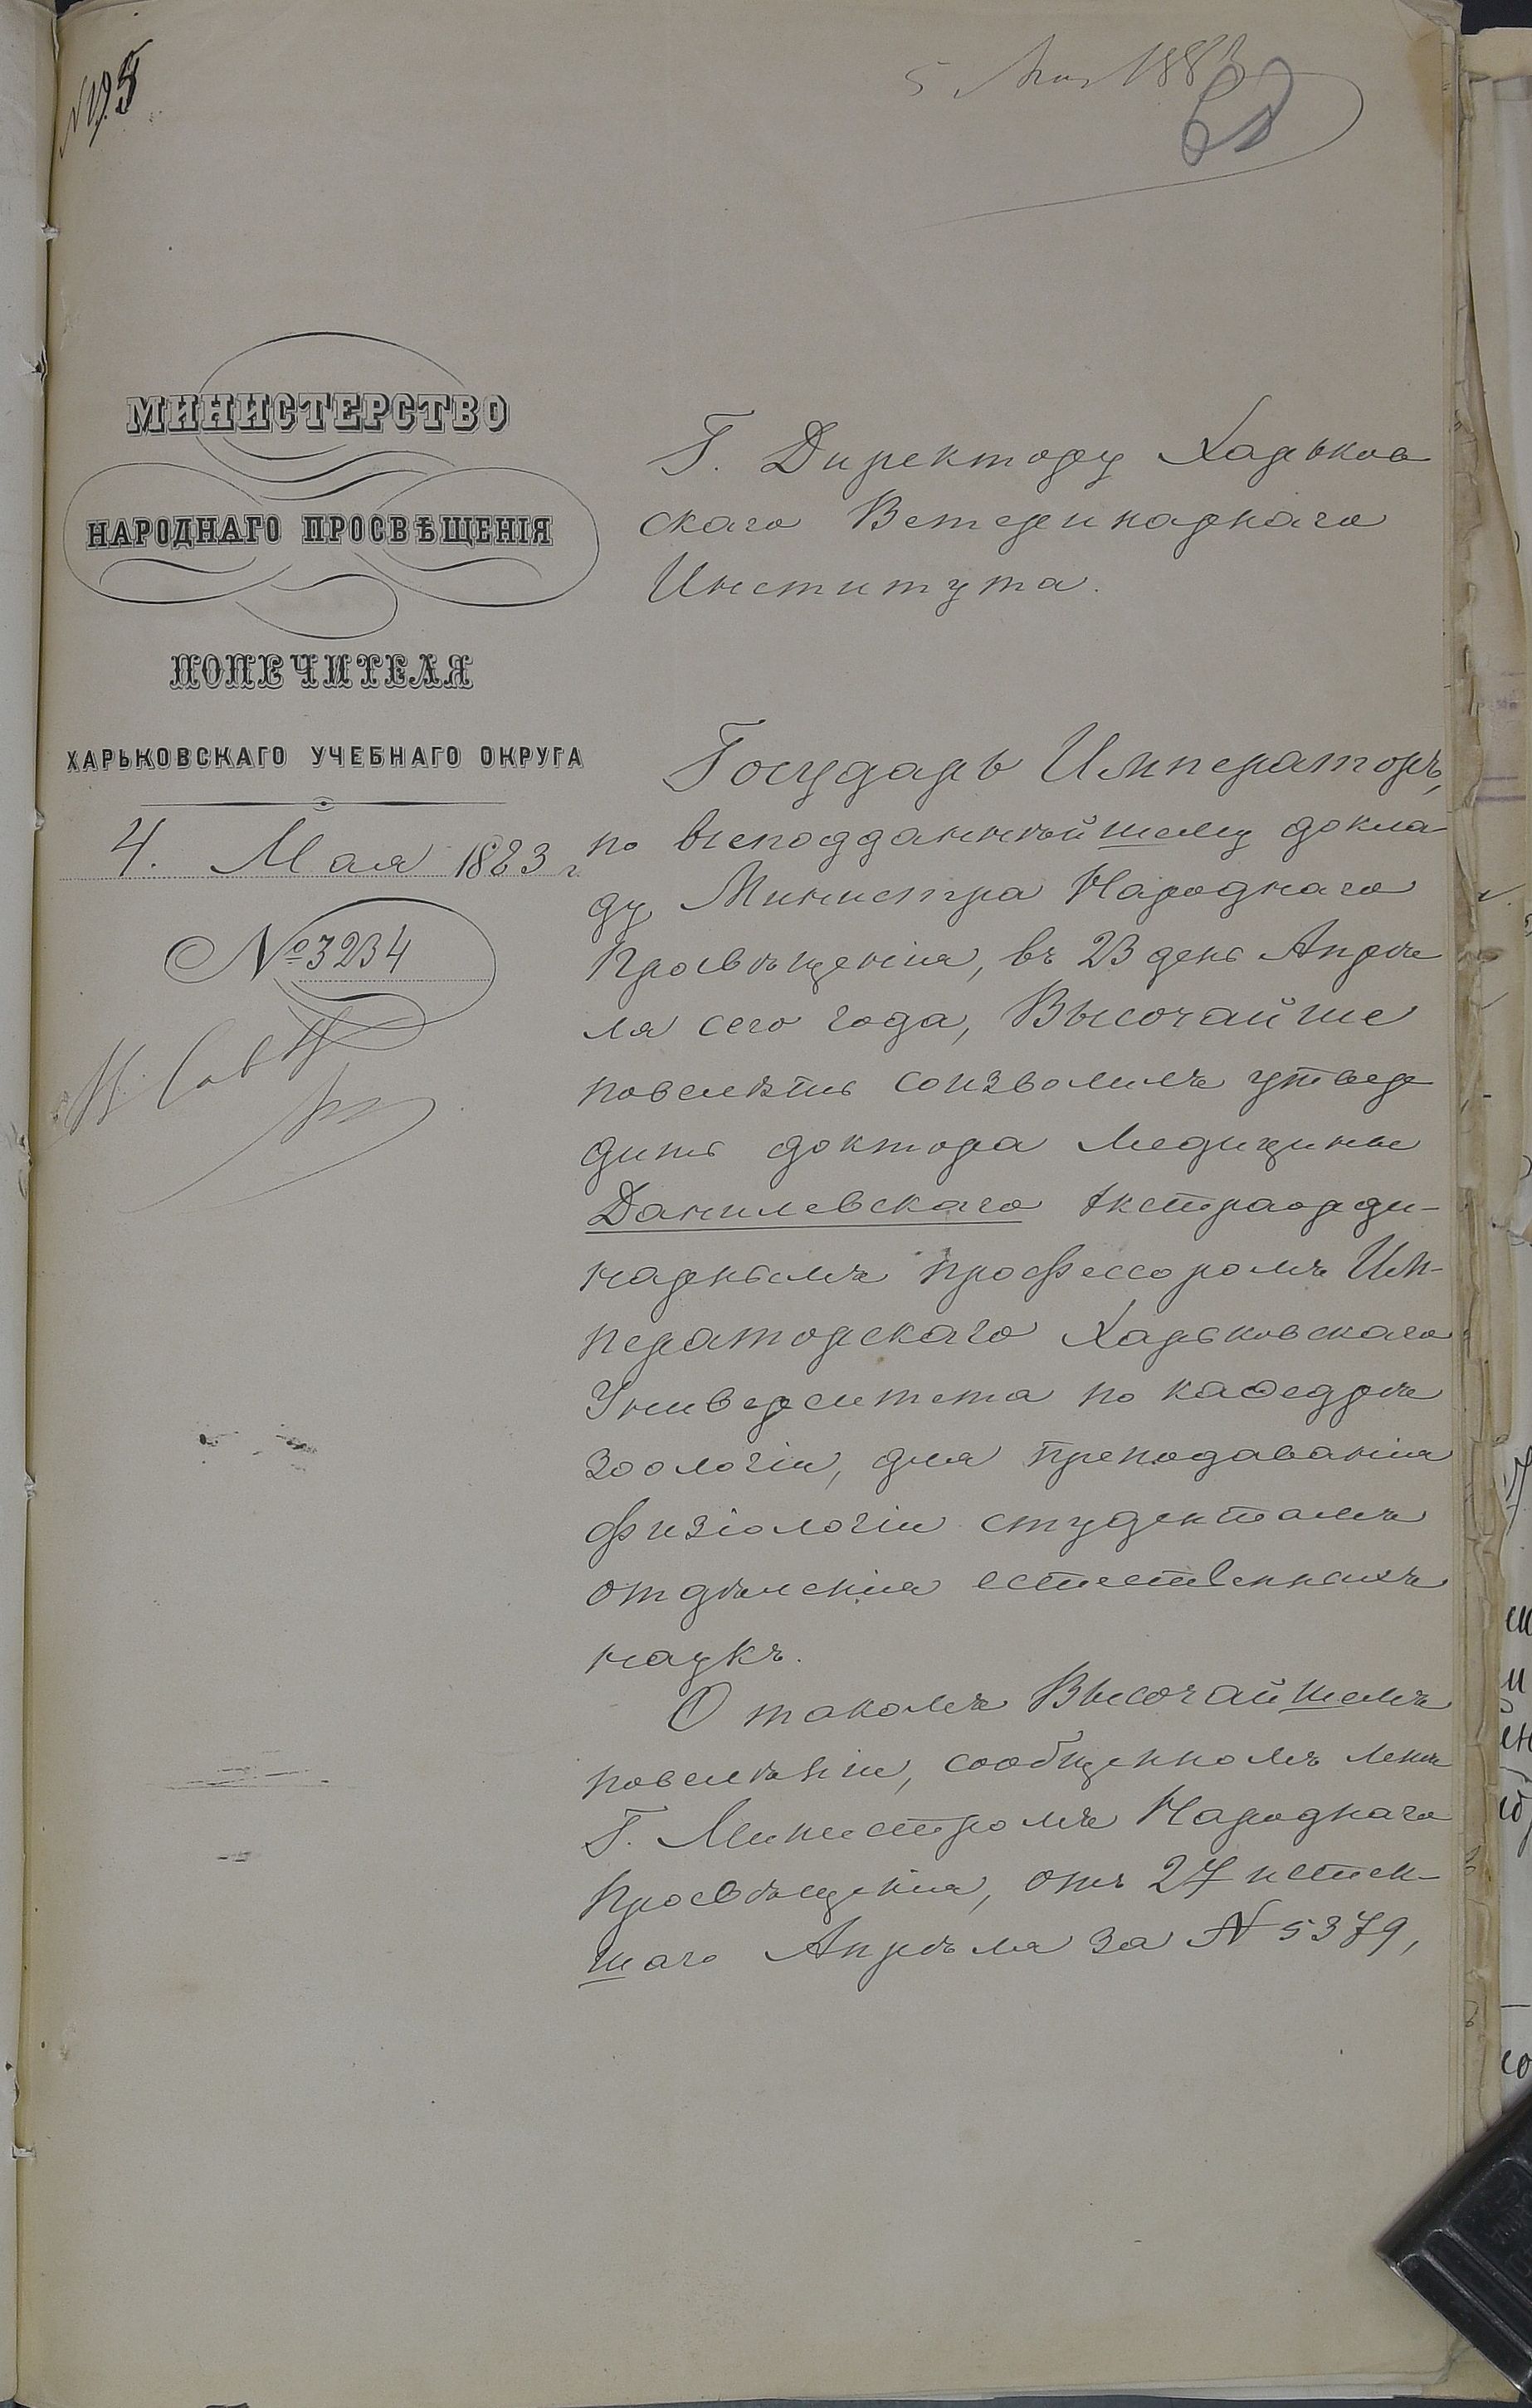 5 Мая 1883
МИНИСТЕРСТВО
НАРОДНАГО ПРОСВѢЩЕНІЯ
ПОПЕЧИТЕЛЯ
ХАРЬКОВСКАГО УЧЕБНАГО ОКРУГА
4. Мая 1883 г.
№ 3234
Г. Директору Харьков
скаго Ветеринарнаго
Института.
Государь Императоръ,
по всеподданнѣйшему докла
ду Министра Народнаго
Просвѣщенія, въ 23 день Апрѣ
ля сего года, Высочайше
повелѣть соизволилъ утвер
дить доктора медицины
Данилевскаго экстраорди-
нарнымъ профессоромъ Им-
ператорскаго Харьковскаго
Университета по каѳедрѣ
зоологіи, для преподаванія
физіологіи студентамъ
отдѣленія естественныхъ
наукъ.
О такомъ Высочайшемъ
повелѣніи, сообщенномъ мнѣ
Г. Министромъ Народнаго
Просвѣщенія, отъ 27 истек-
шаго Апрѣля за № 5379,